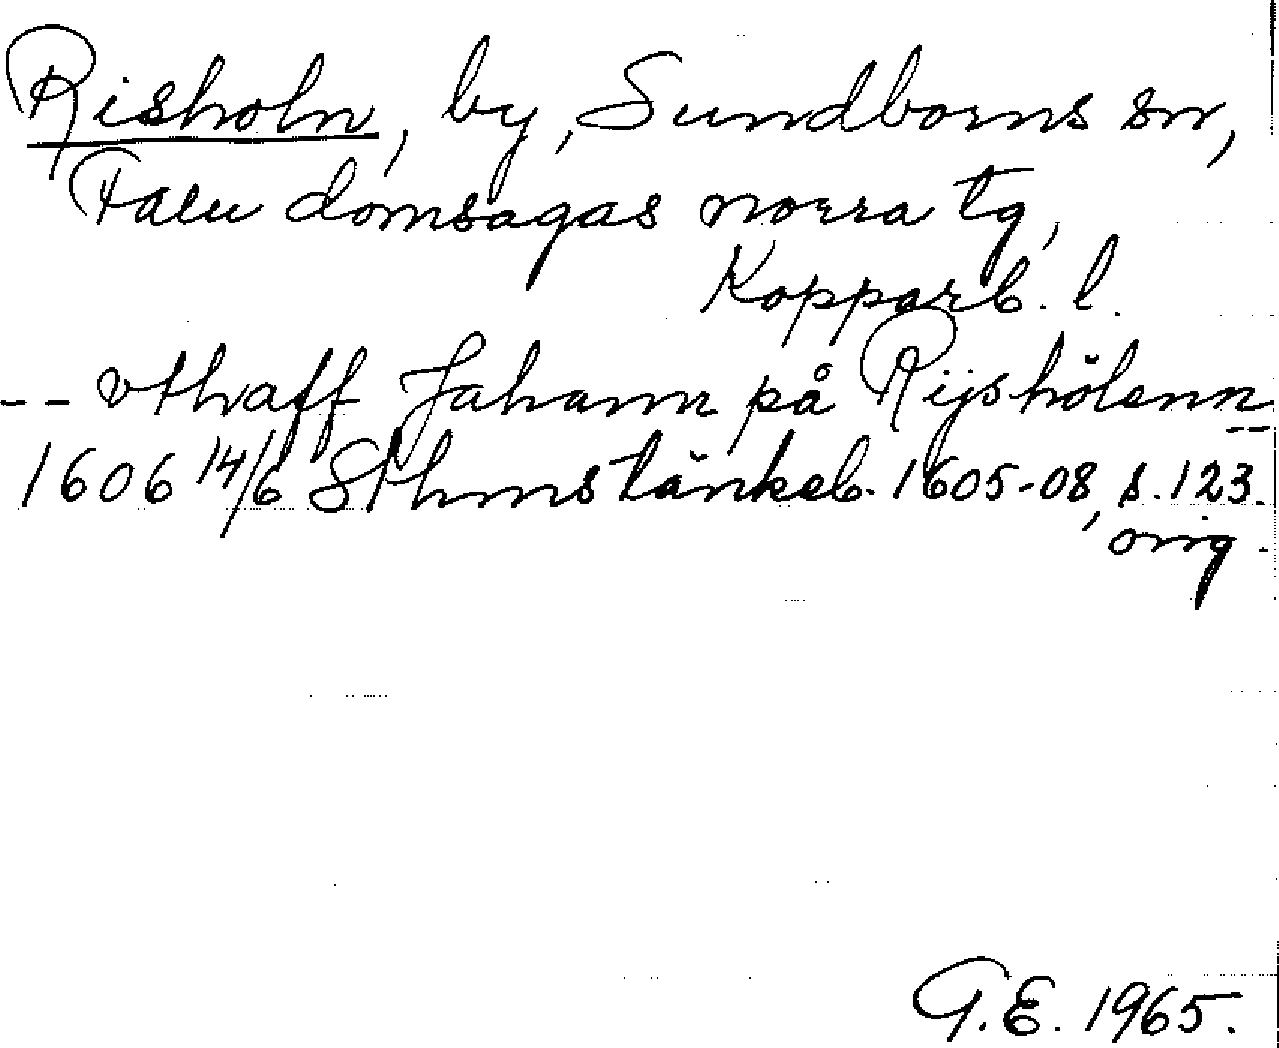 Risholn, by, Sundborns sn,
Falu domsagas norra tg,
Kopparb. l.
-- vthaff Jahann på Rijshölenn --
1606 14/6 Sthmstänkeb. 1605-08, s. 123.
orig.
G.E. 1965.